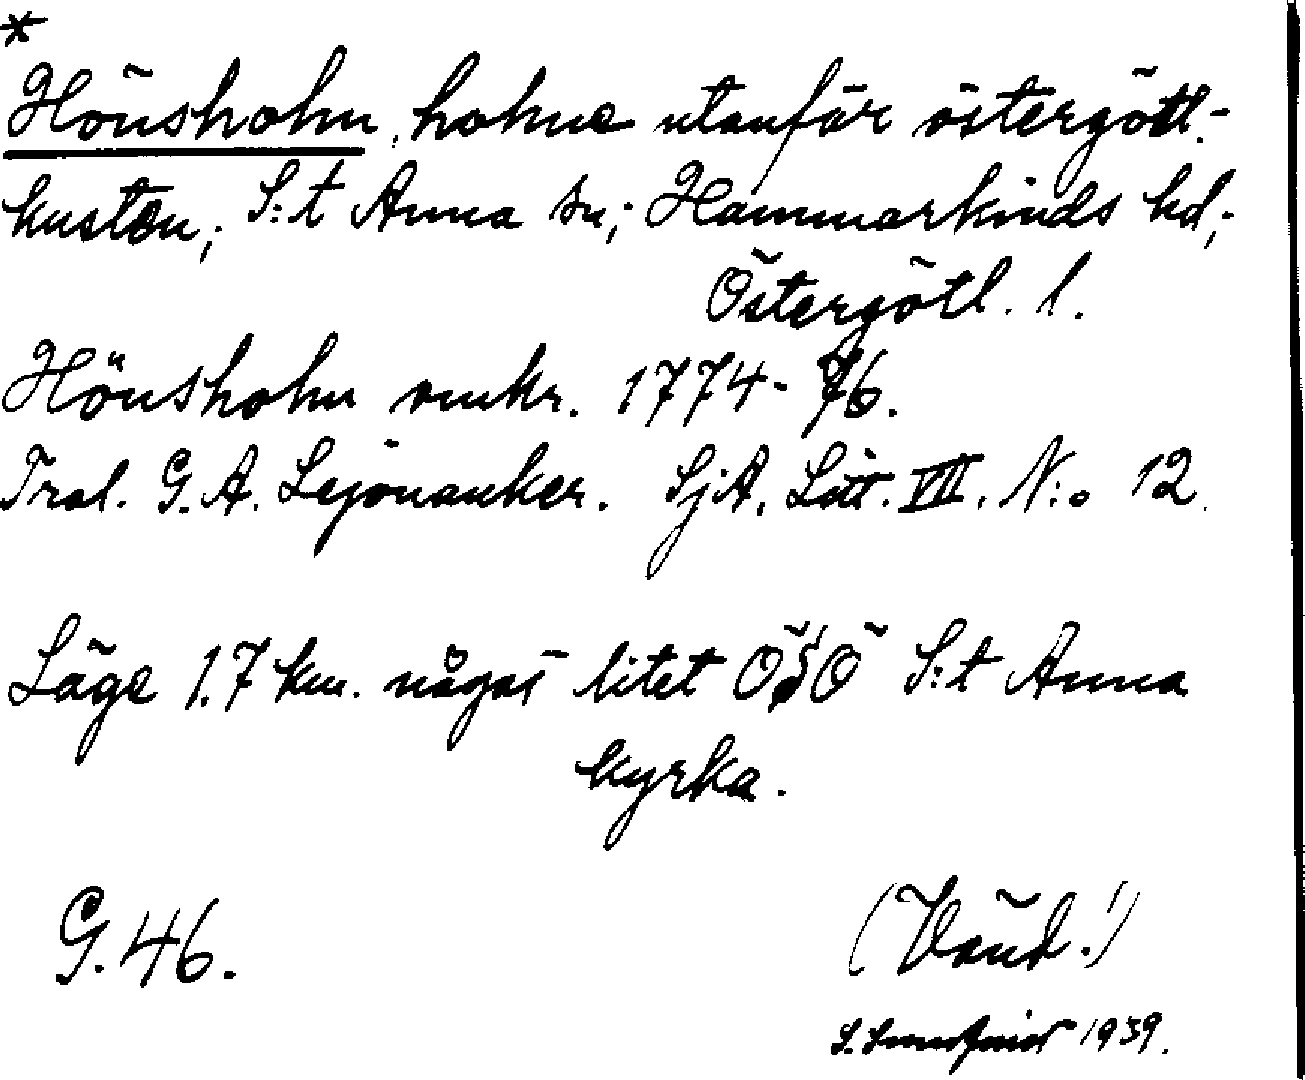 *
Hönsholm, holme utanför östergötl.-
kusten; S:t Anna sn; Hammarkinds hd;
Östergötl. l.
Hönsholm omkr. 1774-76.
Tral. G. A. Lejonanker. SjA. Litt. VII. N:o 12.
Läge 1.7 km. något litet ÖSÖ S:t Anna
kyrka.
G. 46.
(Vänd!)
S. 1939.